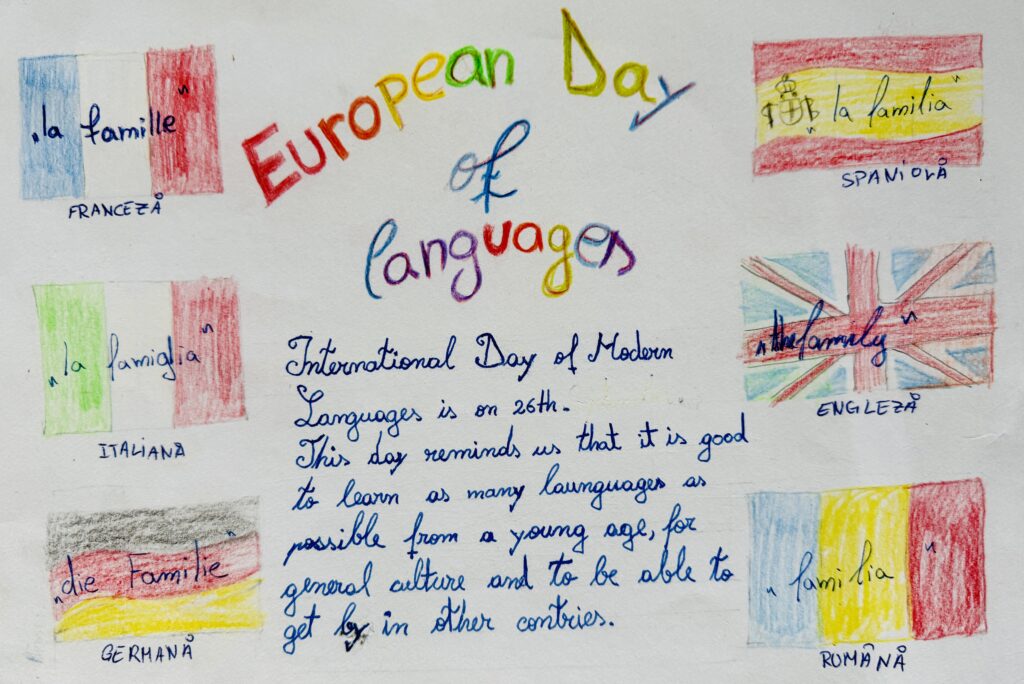 European Day
of
languages
„la famille”
FRANCEZĂ
„la famiglia”
ITALIANĂ
„die Familie”
GERMANĂ
International Day of Modern
Languages is on 26th.
This day reminds us that it is good
to learn as many launguages as
possible from a young age, for
general culture and to be able to
get by in other contries.
„la familia”
SPANIOLĂ
„the family”
ENGLEZĂ
„familia”
ROMÂNĂ